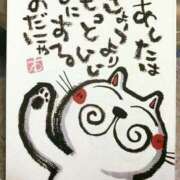 あしたは
きょうより
もっといい
ひになる
のだにゃ